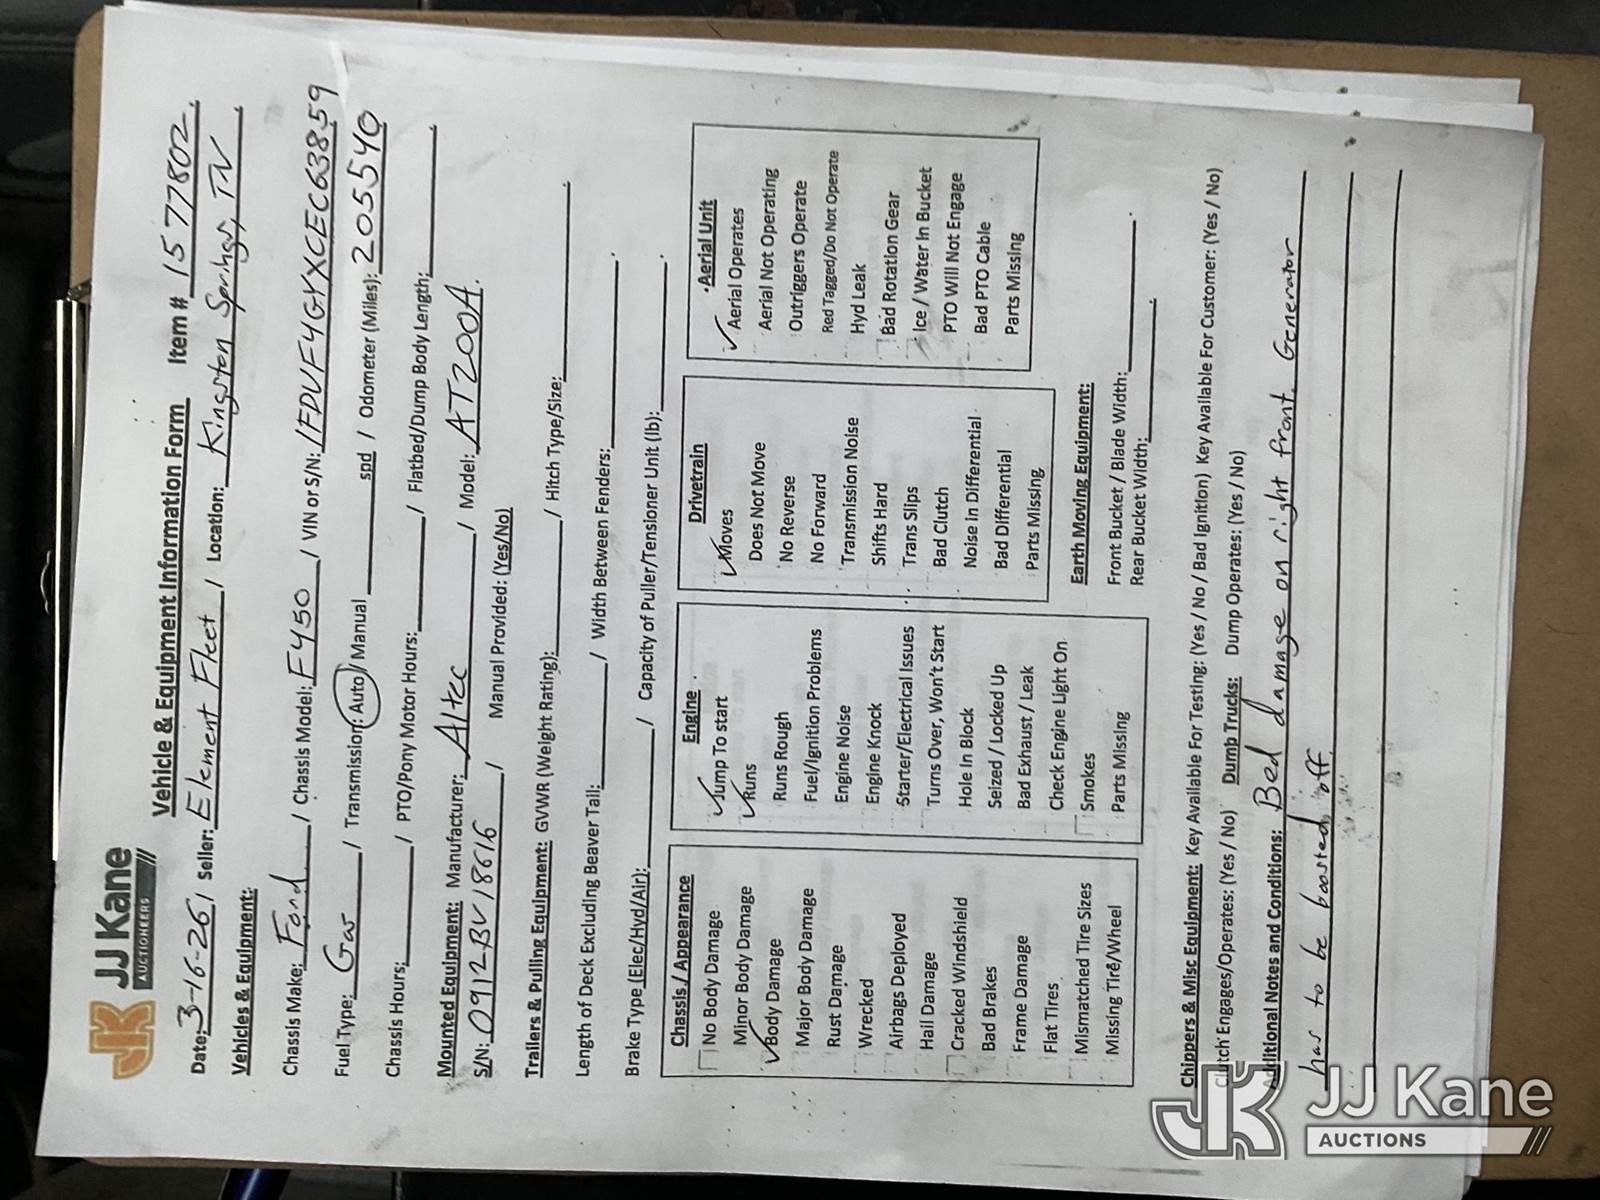 JJ Kane
AUCTIONEERS
Vehicle & Equipment Information Form Item # 1577802.
Date: 3-16-26 / Seller: Element Fleet / Location: Kingston Springs, TN.
Vehicles & Equipment:
Chassis Make: Ford / Chassis Model: F450 / VIN or S/N: 1FDUF4GYXCEC63859
Fuel Type: Gas / Transmission: Auto / Manual spd / Odometer (Miles): 205540
Chassis Hours: / PTO/Pony Motor Hours: / Flatbed/Dump Body Length: .
Mounted Equipment: Manufacturer: Altec / Model: AT200A.
S/N: 0912BV18616 / Manual Provided: (Yes/No)
Trailers & Pulling Equipment: GVWR (Weight Rating): / Hitch Type/Size: .
Length of Deck Excluding Beaver Tail: / Width Between Fenders: .
Brake Type (Elec/Hyd/Air): / Capacity of Puller/Tensioner Unit (lb): .
Chassis / Appearance
No Body Damage
Minor Body Damage
✓ Body Damage
Major Body Damage
Rust Damage
Wrecked
Airbags Deployed
Hail Damage
Cracked Windshield
Bad Brakes
Frame Damage
Flat Tires
Mismatched Tire Sizes
Missing Tire/Wheel
Engine
✓ Jump To start
✓ Runs
Runs Rough
Fuel/Ignition Problems
Engine Noise
Engine Knock
Starter/Electrical Issues
Turns Over, Won't Start
Hole In Block
Seized / Locked Up
Bad Exhaust / Leak
Check Engine Light On
Smokes
Parts Missing
Drivetrain
✓ Moves
Does Not Move
No Reverse
No Forward
Transmission Noise
Shifts Hard
Trans Slips
Bad Clutch
Noise In Differential
Bad Differential
Parts Missing
Aerial Unit
✓ Aerial Operates
Aerial Not Operating
Outriggers Operate
Red Tagged/Do Not Operate
Hyd Leak
Bad Rotation Gear
Ice / Water In Bucket
PTO Will Not Engage
Bad PTO Cable
Parts Missing
Earth Moving Equipment:
Front Bucket / Blade Width: .
Rear Bucket Width: .
Chippers & Misc Equipment: Key Available For Testing: (Yes / No / Bad Ignition) Key Available For Customer: (Yes / No)
Clutch Engages/Operates: (Yes / No) Dump Trucks: Dump Operates: (Yes / No)
Additional Notes and Conditions: Bed damage on right front. Generator
has to be boosted off.
JJ Kane
AUCTIONS